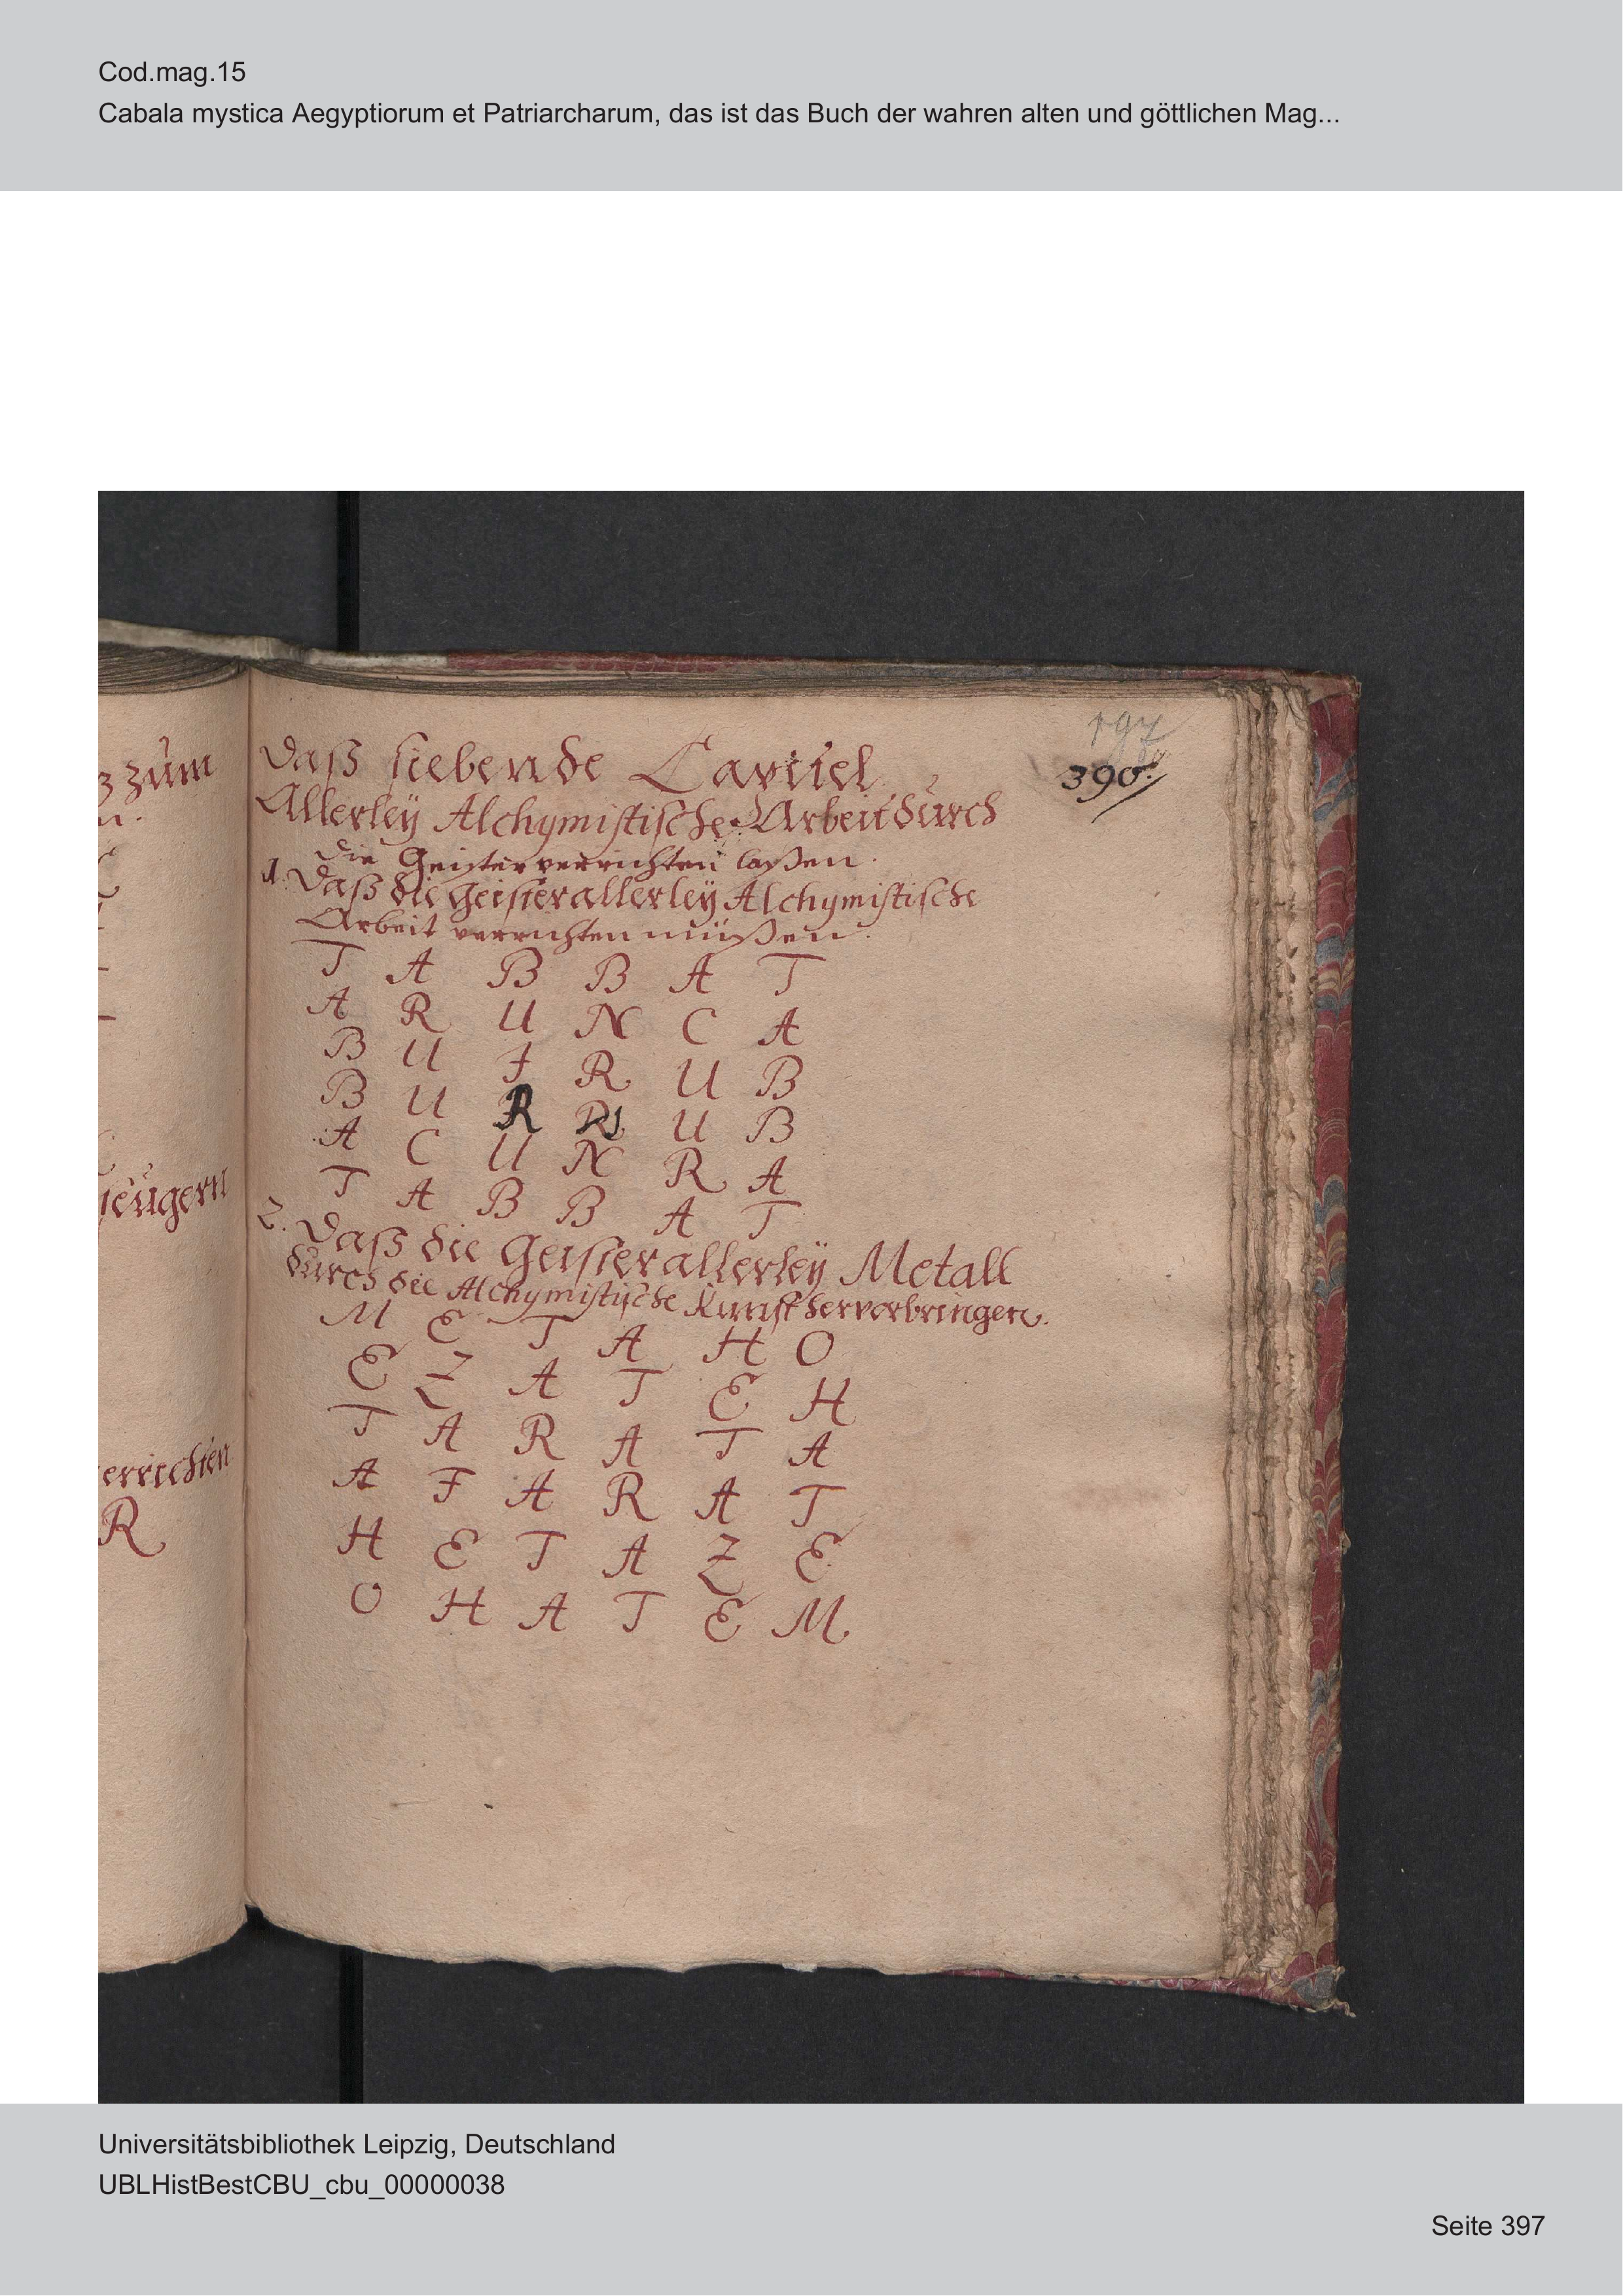 Cod.mag.15
Cabala mystica Aegyptiorum et Patriarcharum, das ist das Buch der wahren alten und göttlichen Mag...
197
390.
z zum
n.
zeugern
errichten
R
Daß siebende Capitel
Allerley Alchymistische Arbeit durch
die Geister verrichten laßen.
1. Daß die Geister allerley Alchymistische
Arbeit verrichten müßen.
T A B B A T
A R U N C A
B U I R U B
B U R R U B
A C U N R A
T A B B A T
2. Daß die Geister allerley Metall
durch die Alchymistische Kunst hervorbringen.
M E T A H O
E Z A T E H
T A R A T A
A F A R A T
H E T A Z E
O H A T E M
Universitätsbibliothek Leipzig, Deutschland
UBLHistBestCBU_cbu_00000038
Seite 397